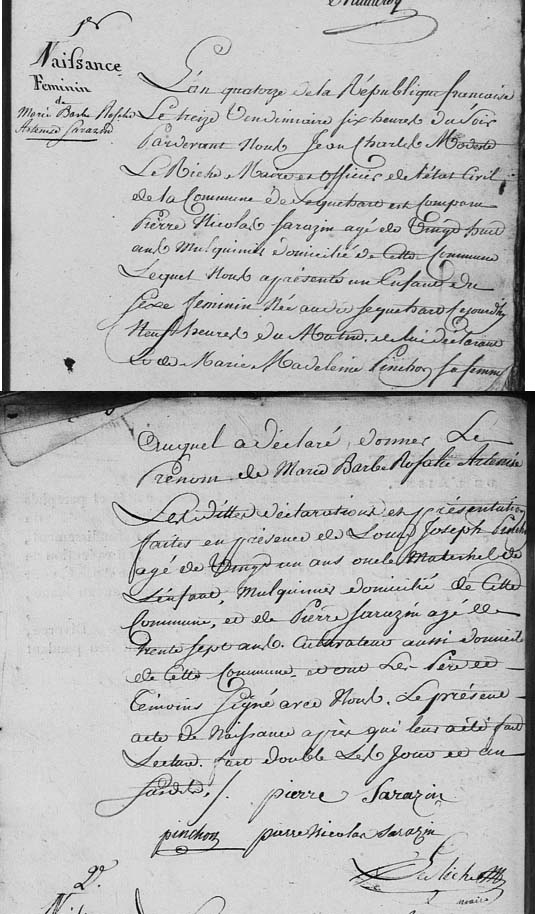 1er
Naissance
Feminin
de
Marie Barbe Rosalie
Artemise Sarazin
L'an quatorze de la République francaise
Le treize Vendemiaire six heures du Soir
Pardevant Nous Jean Charles Modeste
Le Riche Maire et Officier de l'état Civil
de la Commune de Sequehart est comparu
Pierre Nicolas Sarazin agé de Vingt huit
ans Mulquinier domicilié de Cette Commune
Lequel Nous a présenté un Enfant du
Sexe feminin Née audit Sequehart Cejourd'hy
Neuf heures du Matin, de lui déclarant
et de Marie Madeleine Pinchon sa femme
Auquel a déclaré donner Le
Prénom de Marie Barbe Rosalie Artemise
Les dittes déclarations et présentation
faites en présence de Louis Joseph Pinchon
agé de Vingt un ans oncle Maternel de
L'enfant, Mulquinier domicilié de Cette
Commune, et de Pierre Sarazin agé de
trente Sept ans Cultivateur aussi domicilié
de Cette Commune, et ont Les Père et
témoins Signé avec Nous Le présent
acte de Naissance après qu'il leur a été fait
Lecture. fait double Les Jour et an
Susdits./. pierre Sarazin
pinchon pierre nicolas sarazin
Le Riche
maire
2e